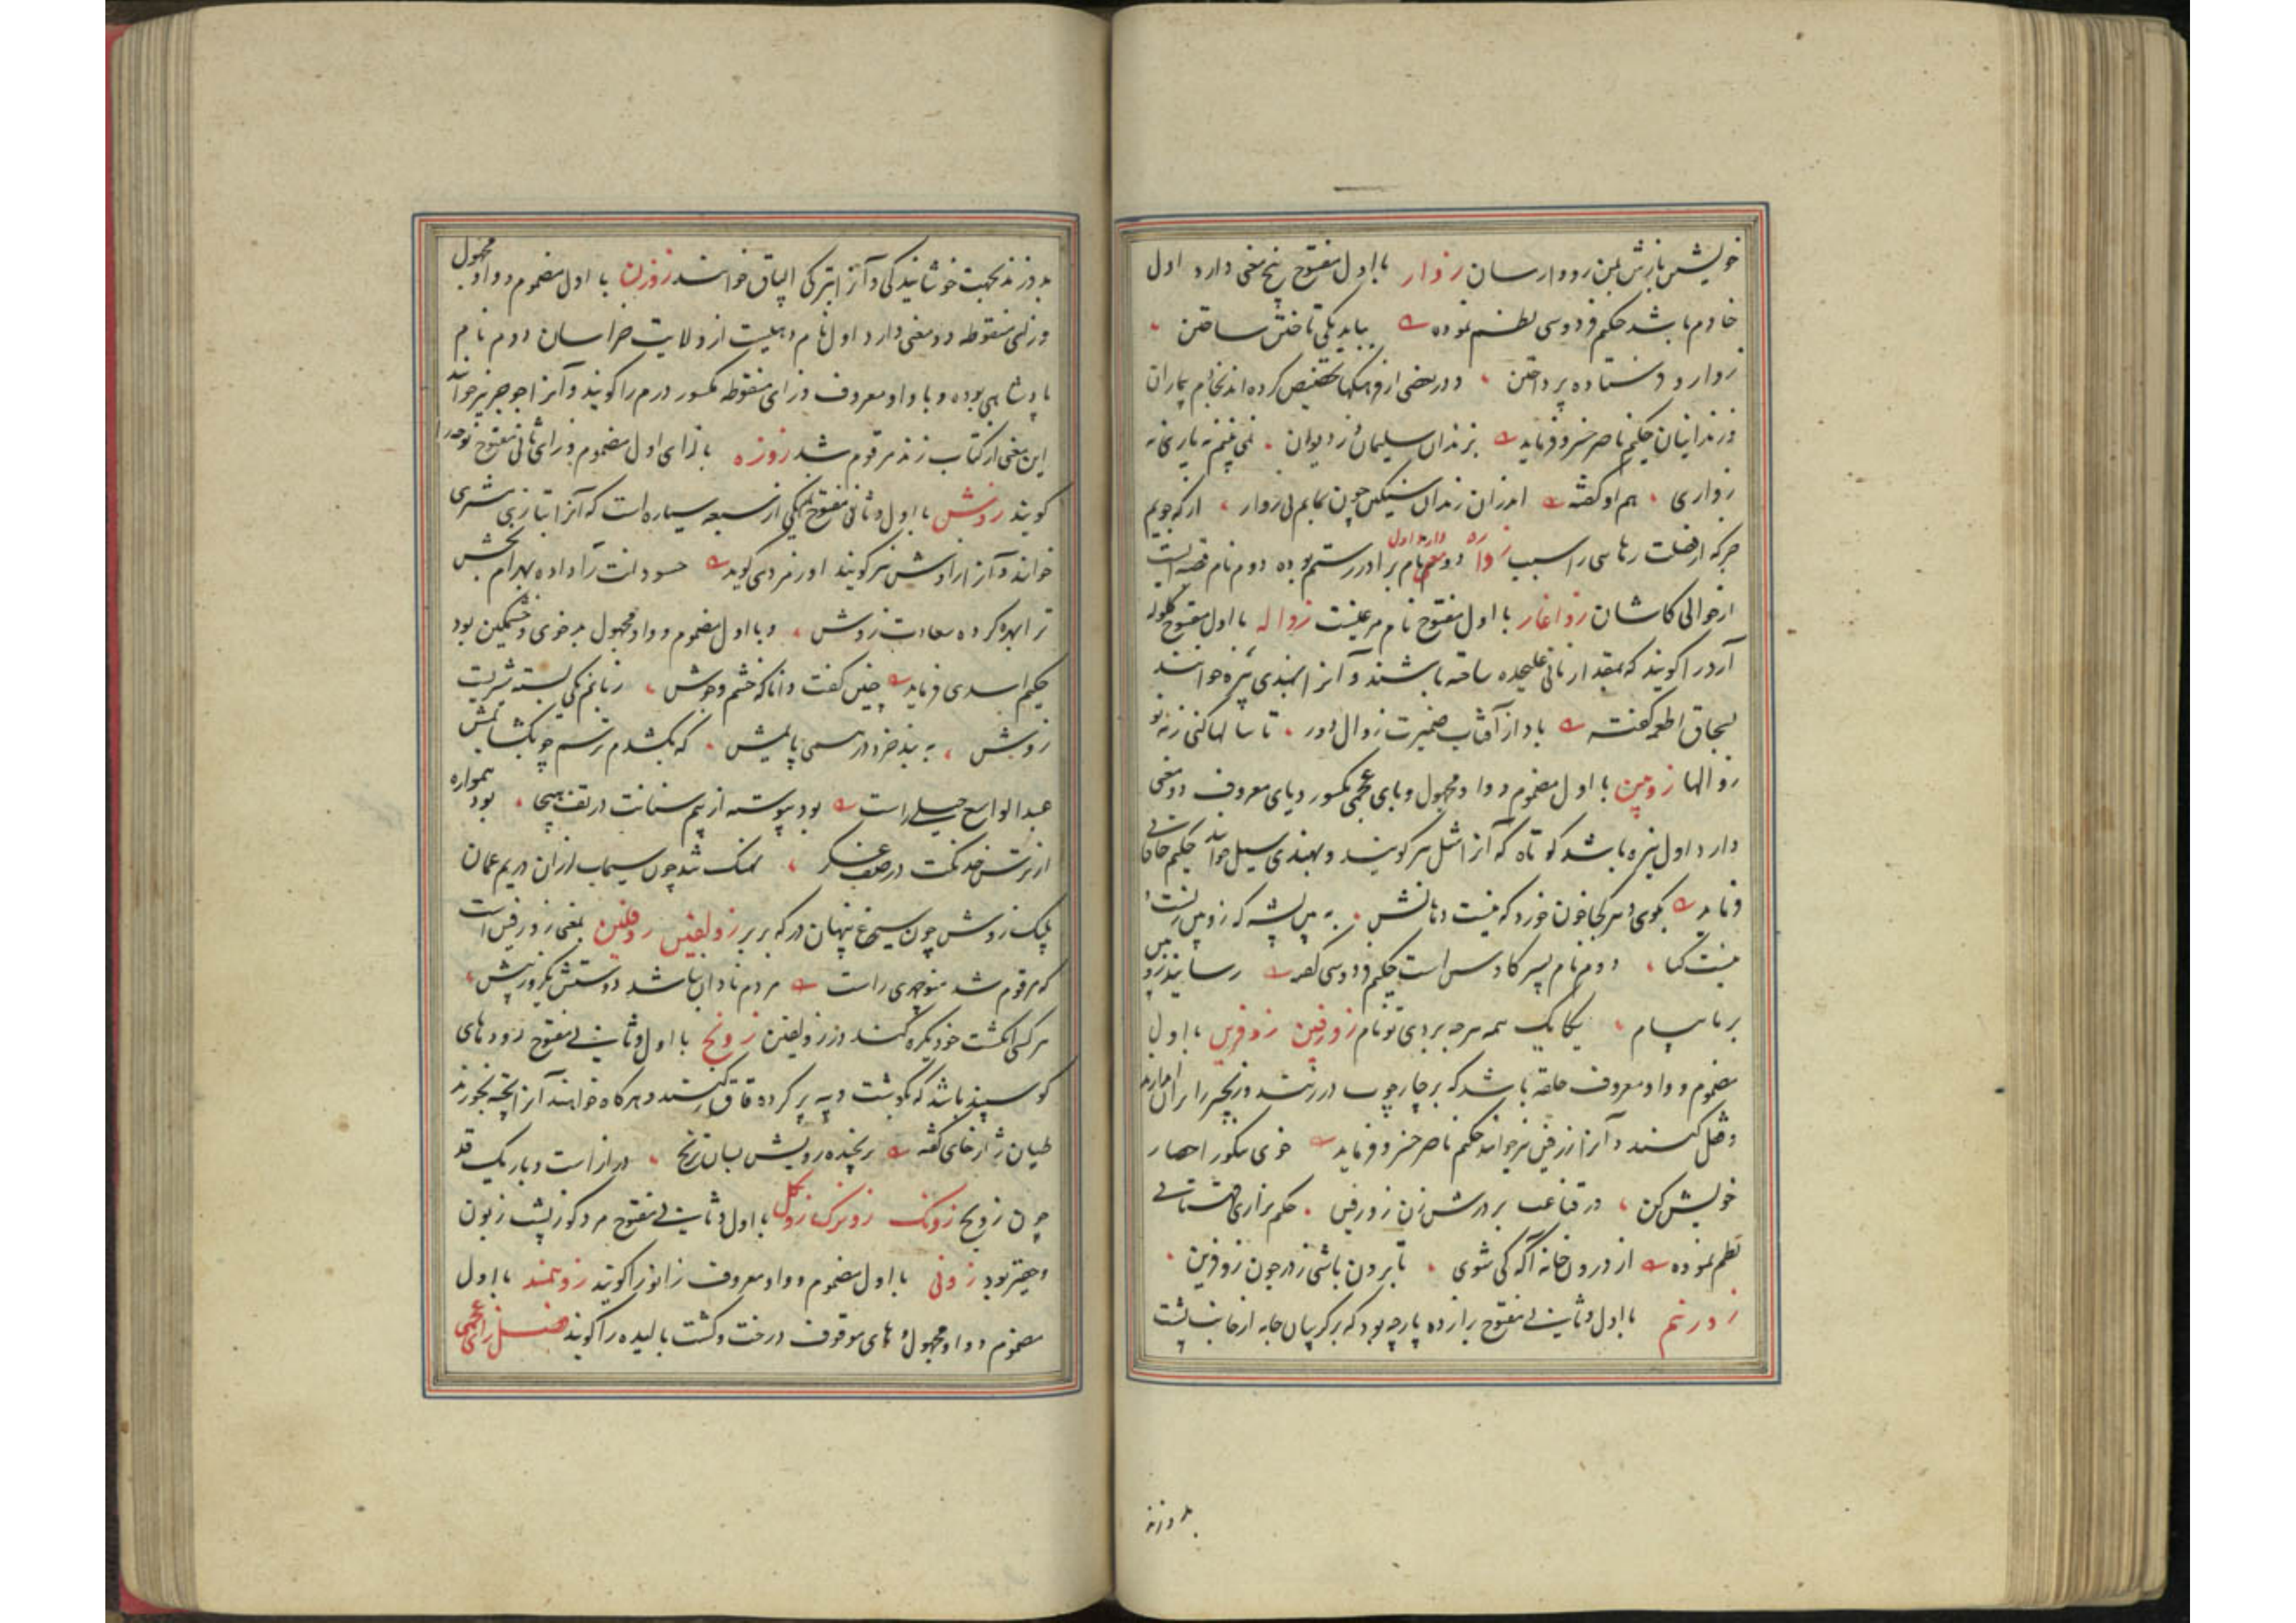 خویش بارش لبن رودوارسان زوار با اول مفتوح پنج معنی دارد اول
خادم باشد حکیم فردوسی نظم نموده بباید یکی تاختن ساختن
زوار و فرستاده پرداختن و در بعضی از فرهنگها تخصیص کرده‌اند بخادم بیماران
و زندانیان حکیم ناصر خسرو فرماید بزندان سلیمان ز دیوان نمی بینم نه یاری نه
زواری هم او گفته اندران زندان سنگین چون بمانم بی زوار از که جویم
جز که از فضلت رهایی را سبب زواره دو معنی دارد اول نام برادر رستم بوده دوم نام قصبه ایست
از حوالی کاشان زواغار با اول مفتوح نام مرغیست زواله با اول مفتوح گلوله
آرد را گویند که بمقدار نانی علیحده ساخته باشند و آنرا بهندی پیره خوانند
بسحاق اطعمه گفته باد از آفتاب ضمیرت زوال دور تا سالها کنی ز نو
زوالها زوپین با اول مضموم و واو مجهول و بای عجمی مکسور و یای معروف دو معنی
دارد اول نیزه باشد کوتاه که آنرا شل نیز گویند و بهندی سیل خوانند حکیم خاقانی
فرماید بموی هر کجا خون خورد که نیست دهانش به بین پشه که زوپین زنست و
نیست کیا دوم نام پسر کاوس است حکیم فردوسی گفته رسانید زوپین
برما پیام یکایک همه هرچه بردی تو نام زورفین زوفرین با اول
مضموم و واو معروف حلقه باشد که بر چارچوب در زنند و زنجیر را بر آن اندازند
و قفل کنند و آنرا زرفین نیز خوانند حکیم ناصر خسرو فرماید خوی نیکو را حصار
خویش کن در قناعت بر درش زن زورفین حکیم نزاری قهستانی
نظم نموده از درون خانه آگه کی شوی تا برون باشی ز در چون زوفرین
زورنم با اول و ثانی مفتوح براز ده پارچه بود که بر گریبان جامه از جانب پشت
بدوزند
بدوزند بجهت خوشایندگی و آنرا بترکی الباق خوانند زوزن با اول مضموم و واو مجهول
و زای منقوطه دو معنی دارد اول نام دهیست از ولایت خراسان دوم نام
پادشاهی بوده و با واو معروف و زای منقوطه مکسور درم را گویند و آنرا جوجن نیز خوانند
این معنی از کتاب زند مرقوم شد زوزه با زای اول مضموم و زای ثانی مفتوح نوحه را
گویند زوش با اول و ثانی مفتوح یکی از سبعه سیاره است که آنرا بتازی مشتری
خوانند و آنرا زاوش نیز گویند اورمزدی گوید حسودانت را داده بهرام بخش
ترا بهره کرده سعادت زوش و با اول مضموم و واو مجهول بدخوی و خشمگین بود
حکیم اسدی فرماید چنین گفت دانا که خشم و جوش زبانم یکی بسته شیریست
زوش به بند خرد در همی پایمش که بکشدم ترسم چو بگشایمش
عبدالواسع جبلی راست بود پیوسته از بیم سنانت در تف هیجا بود همواره
از ترس خدنگت در صف عسکر نهنگ تند چون سیماب لرزان در یم عمان
پلنگ زوش چون سیمرغ پنهان در که بربر زولفین زوفلین بمعنی زورفین است
که مرقوم شد منوچهری راست مردم نادان نباشد دوستش یکروز بیش
هر کسی انگشت خود یکره کند در زولفین زونج با اول و ثانی مفتوح روده‌های
گوسپند باشد که بگوشت و پیه پر کرده قاق کنند و هرگاه خواهند آنرا پخته بخورند
طیان ژاژخای گفته ترنجیده رویش بسان ترنج درازست و باریک قد
چون زونج زونک زونزک زونکل با اول و ثانی مفتوح مردکوژپشت زبون
و حقیر بود زونی با اول مضموم و واو معروف زانو را گویند زوهمند با اول
مضموم و واو مجهول و های موقوف درخت و کشت بالیده را گویند فصل زای عجمی